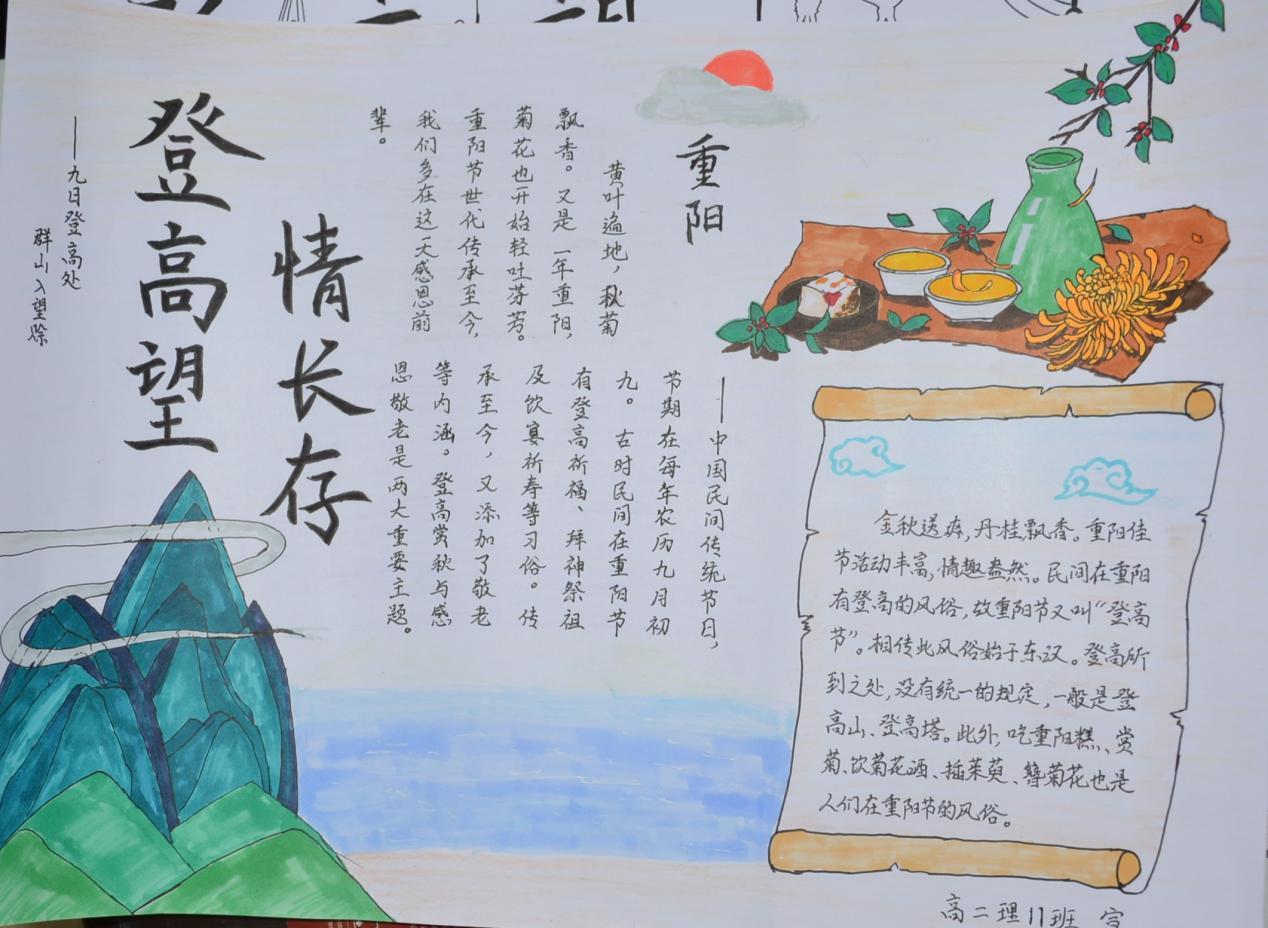 登高望
情长存
——九日登高处
群山入望赊
重阳
黄叶遍地，秋菊
飘香。又是一年重阳，
菊花也开始轻吐芬芳。
重阳节世代传承至今，
我们多在这天感恩前
辈。
——中国民间传统节日，
节期在每年农历九月初
九。古时民间在重阳节
有登高祈福、拜神祭祖
及饮宴祈寿等习俗。传
承至今，又添加了敬老
等内涵。登高赏秋与感
恩敬老是两大重要主题。
金秋送爽，丹桂飘香。重阳佳
节活动丰富，情趣盎然。民间在重阳
有登高的风俗，故重阳节又叫“登高
节”。相传此风俗始于东汉。登高所
到之处，没有统一的规定，一般是登
高山、登高塔。此外，吃重阳糕、赏
菊、饮菊花酒、插茱萸、簪菊花也是
人们在重阳节的风俗。
高二理11班